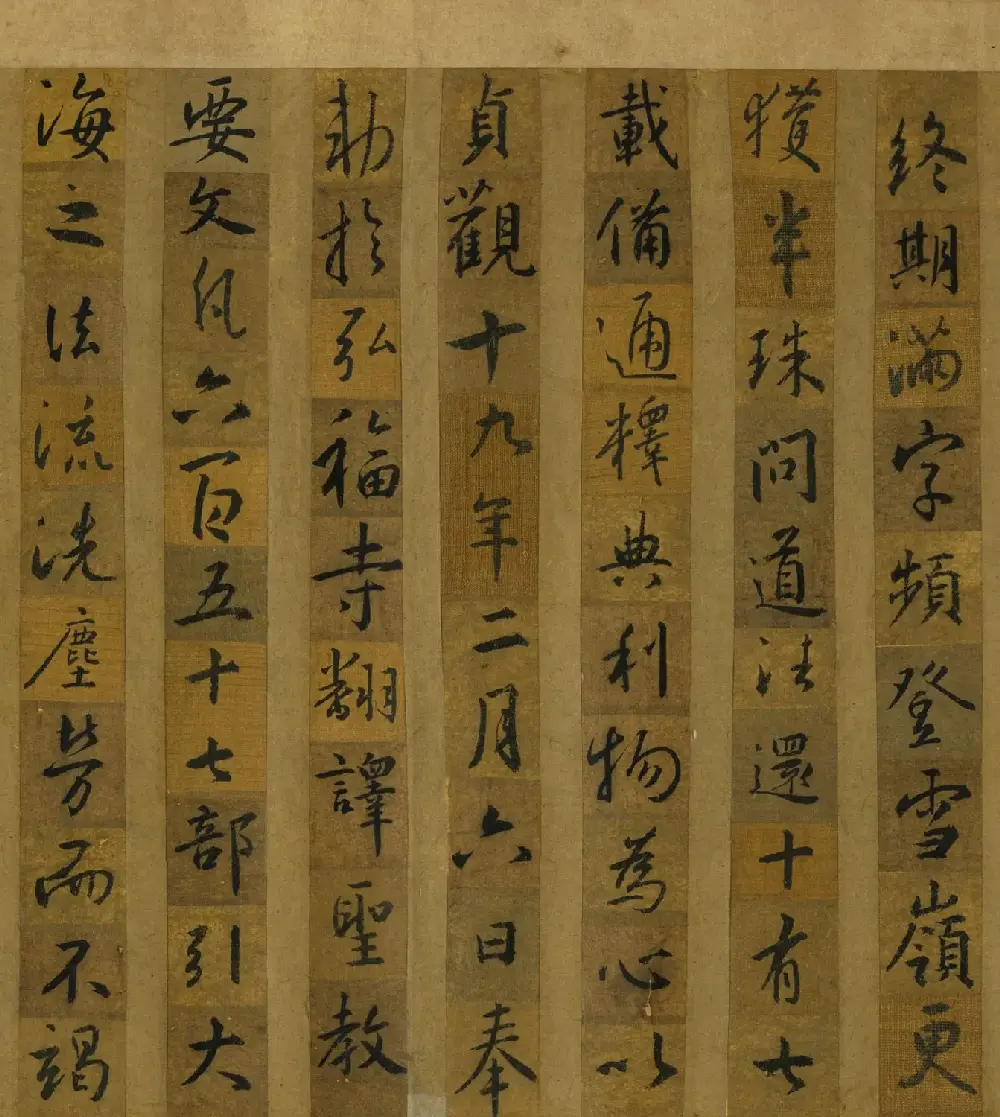 終期滿字頻登雪嶺更
獲半珠問道往還十有七
載備通釋典利物為心以
貞觀十九年二月六日奉
勅於弘福寺翻譯聖教
要文凡六百五十七部引大
海之法流洗塵勞而不竭